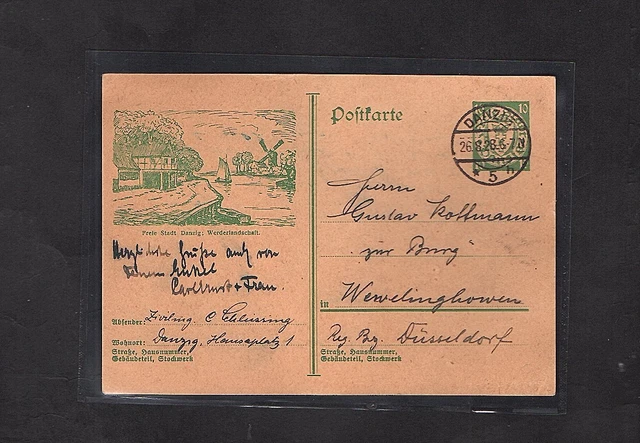 Freie Stadt Danzig: Werderlandschaft.
Herzliche Grüße auch von
Deinem Enkel
Carl Ernst + Frau.
Absender: Ziviling. C Schleusing
Wohnort: Danzig, Hansaplatz 1
Straße, Hausnummer,
Gebäudeteil, Stockwerk
Postkarte
10
DANZIG
26.8.28.6-7
* 5 n
Herrn
Gustav Kottmann
zur Burg
in Wewelinghoven
Reg. Bez. Düsseldorf
Straße, Hausnummer,
Gebäudeteil, Stockwerk